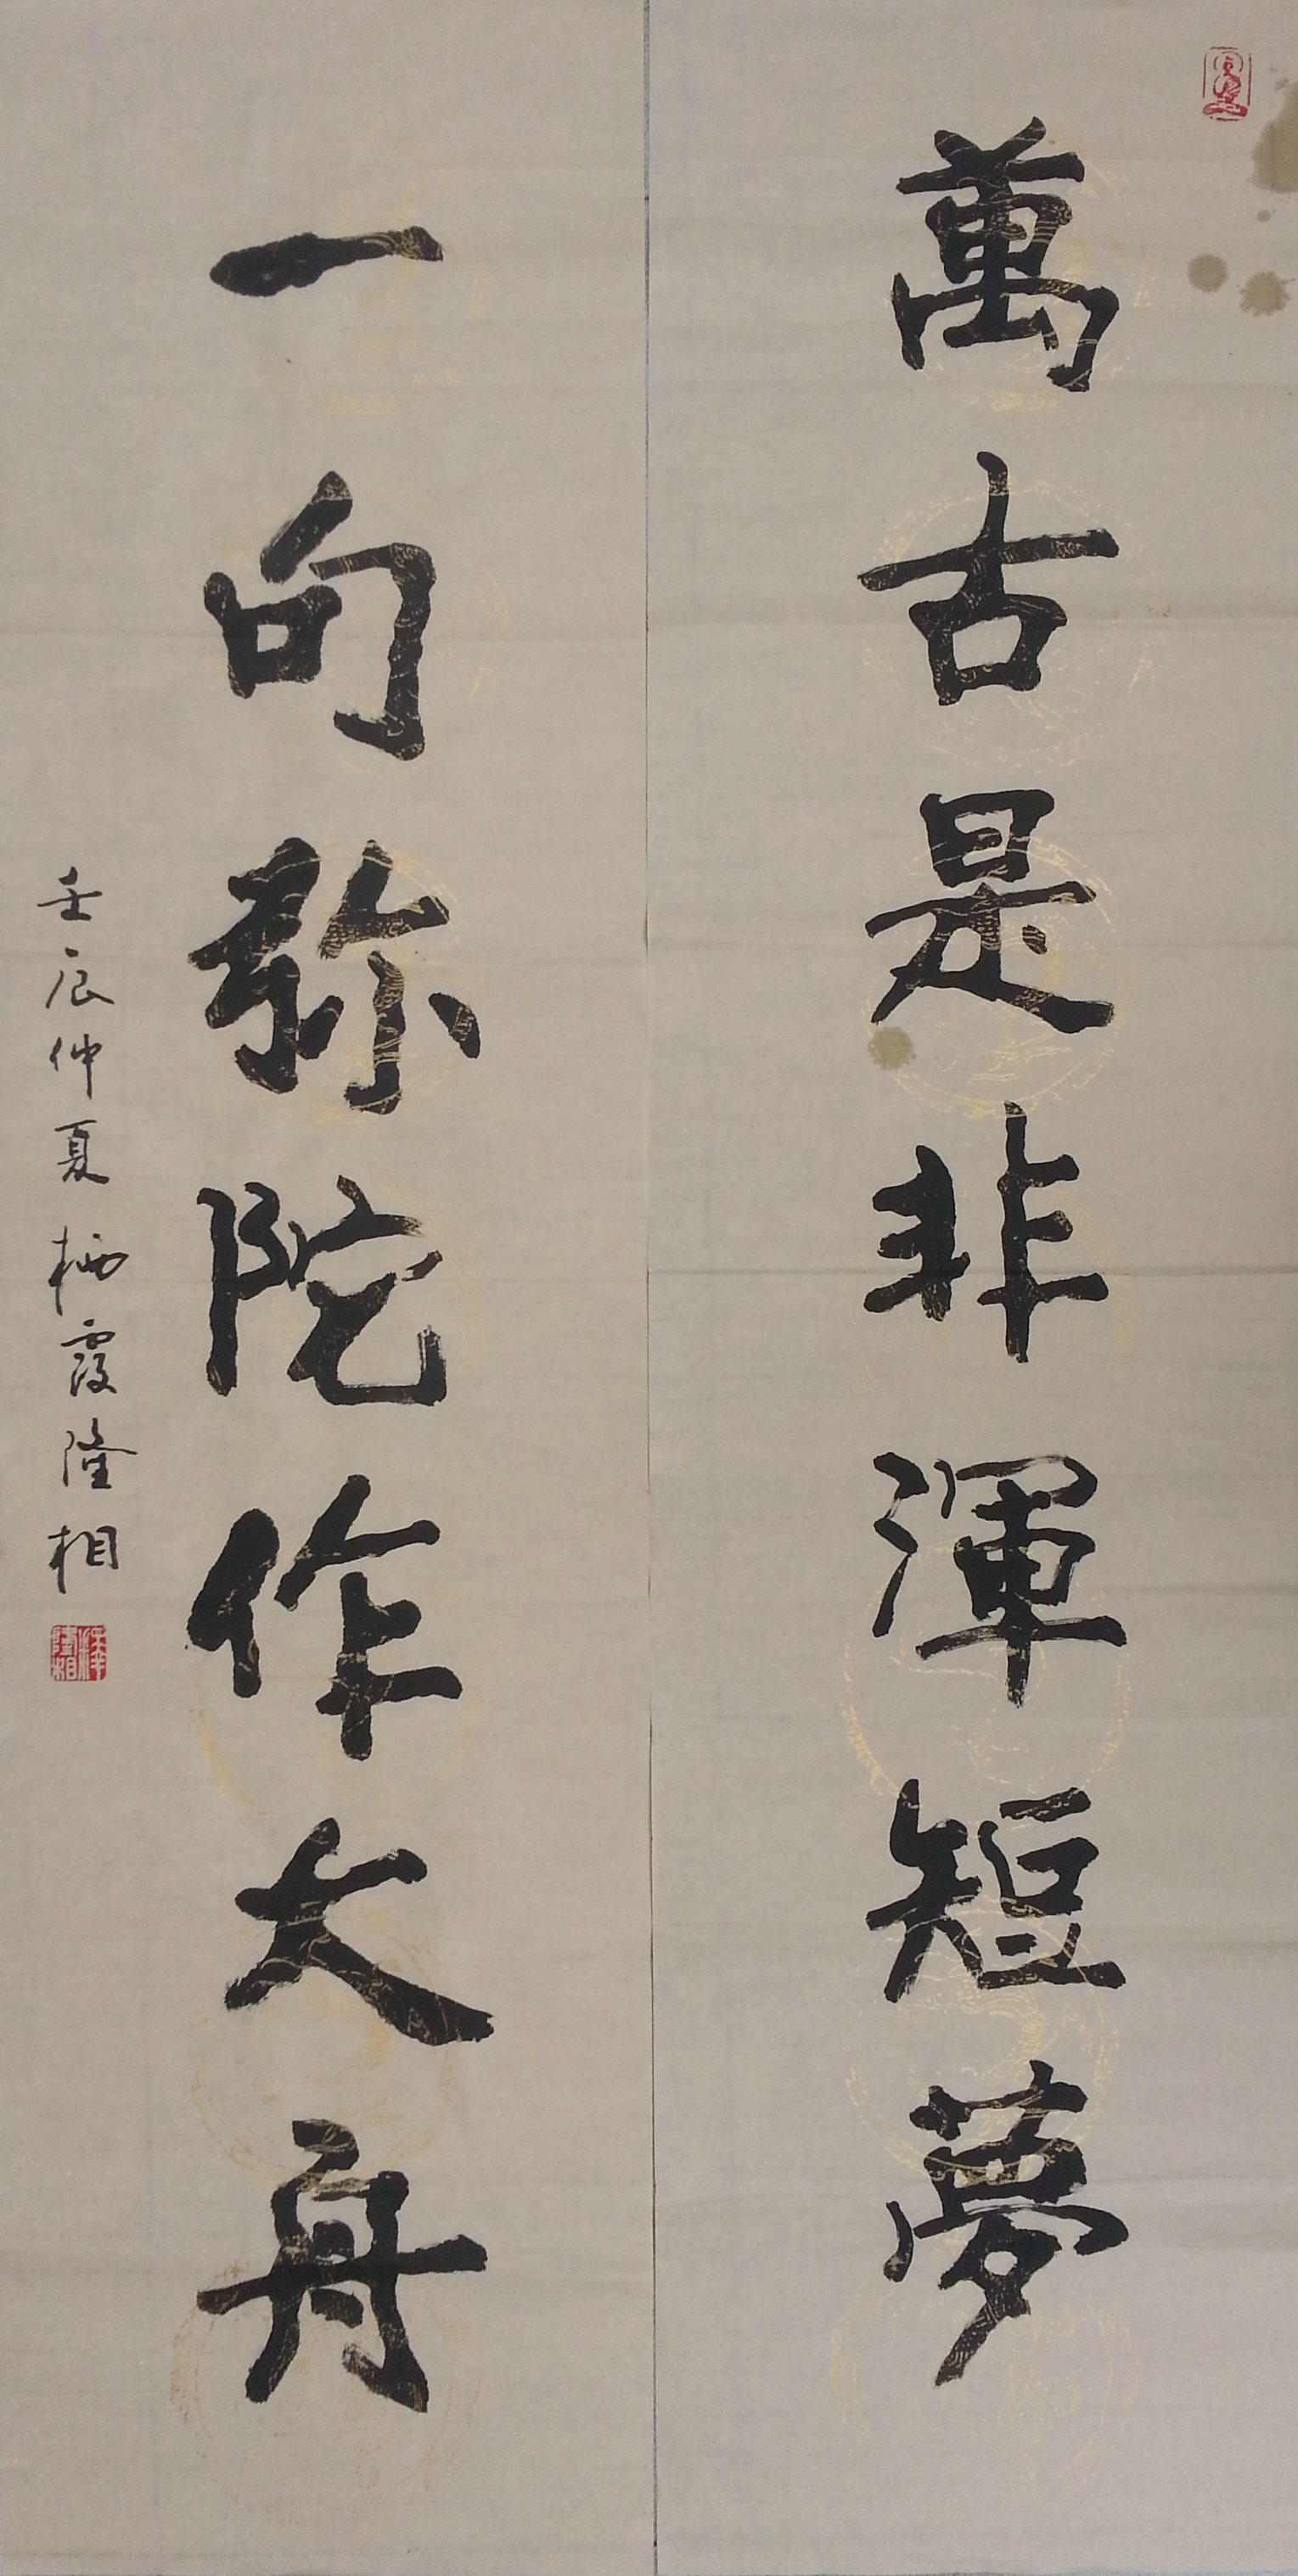 萬古是非渾短夢
一句弥陀作大舟
壬辰仲夏栖霞隆相